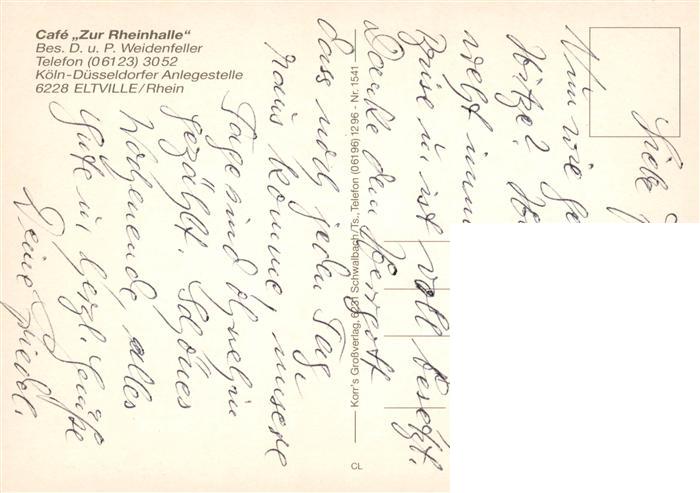 Café „Zur Rheinhalle“
Bes. D. u. P. Weidenfeller
Telefon (0 61 23) 30 52
Köln-Düsseldorfer Anlegestelle
6228 ELTVILLE/Rhein
Korr's Großverlag, 6231 Schwalbach/Ts., Telefon (0 61 96) 12 96 - Nr. 1541
CL
Liebe
Nun wie ge
Hitze?
weht imm
Brise u. ist voll besetzt.
Danke dem Herrgott
dass noch jeden Tag
raus komme, unsere
Tage sind ohnehin
gezählt. Schönes
Wochenende, alles
Gute u. herzl. Grüße
Deine Friedel.